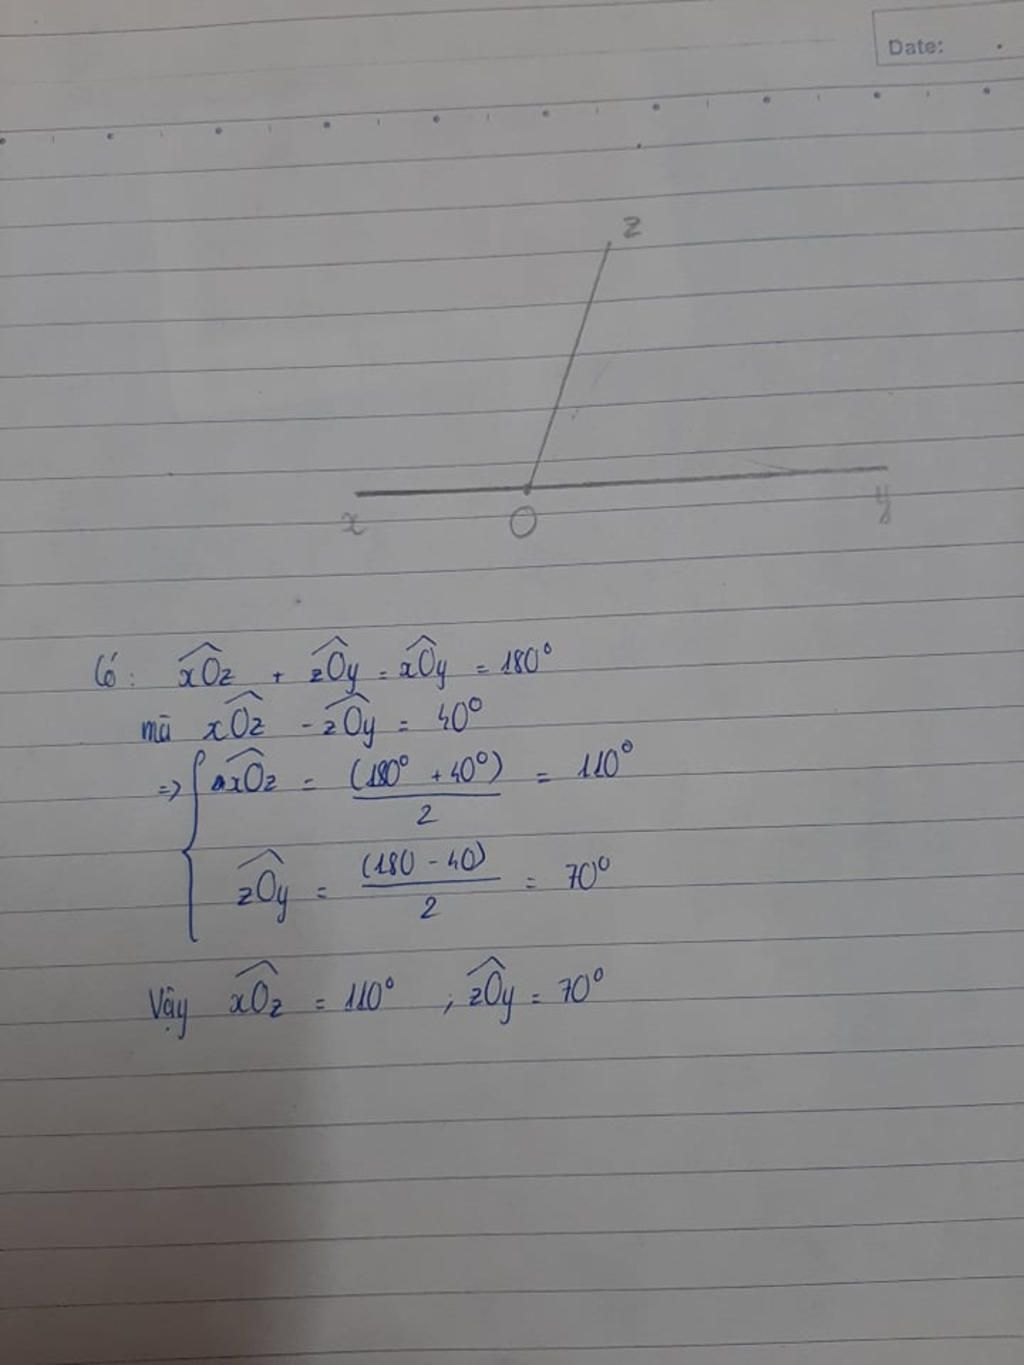 Date:
z
x O y
Có: xOz + zOy = xOy = 180°
mà xOz - zOy = 40°
=> { xOz = (180° + 40°) / 2 = 110°
zOy = (180 - 40) / 2 = 70°
Vậy xOz = 110° ; zOy = 70°